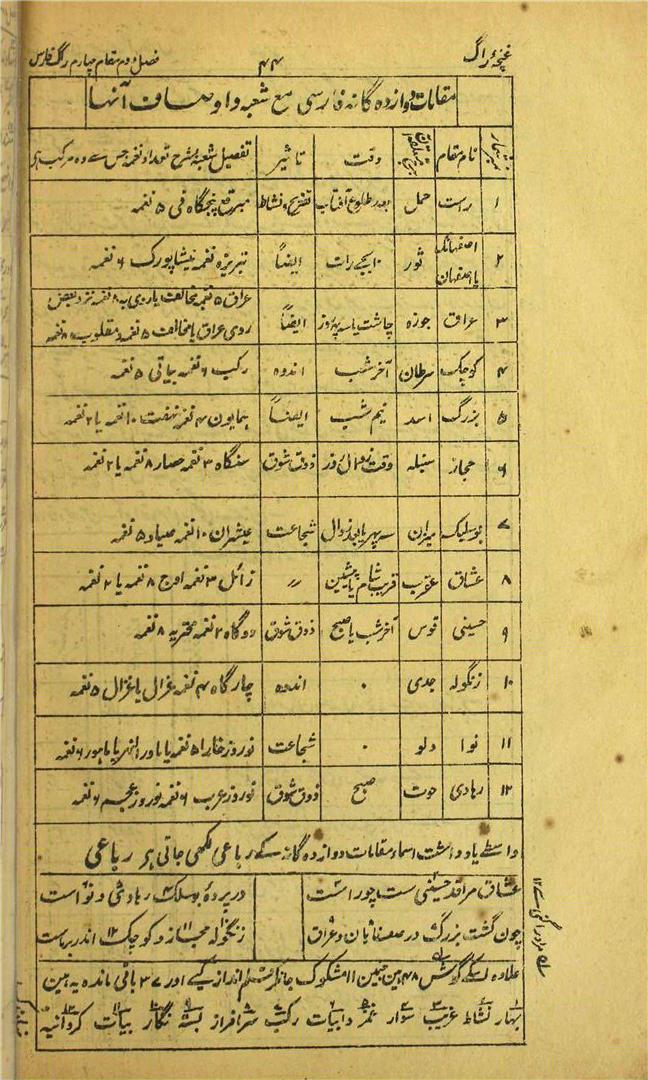 غنچۂ راگ
۴۴
فصل دوم مقام چہارم رنگ فارس
مقامات دوازدہ گانہ فارسی مع شعبہ و اوصاف آنہا
نمبر شمار نام مقام وقت تاثیر تفصیل شعبہ و شرح تعداد نغمہ جس سے وہ مرکب ہی
۱ راست حمل بعد طلوع آفتاب تفریح و نشاط مبرقع پنجگاہ فی ۵ نغمہ
۲ اصفہانک یا اصفہان ثور ۱۰ بجے رات ایضاً تبریزہ نغمہ نیشاپورک ۶ نغمہ
۳ عراق جوزہ چاشت یا سہ پہر روز ایضاً عراق ۵ نغمہ مخالفت یا روی بہ ۸ نغمہ نزد بعض
روی عراق یا مخالفت ۵ نغمہ و مقلوب ۸ نغمہ
۴ کوچک سرطان آخر شب اندوہ رکب ۶ نغمہ بیاتی ۵ نغمہ
۵ بزرگ اسد نیم شب ایضاً ہمایون ۴ نغمہ نہفت ۱۰ نغمہ یا ۲ نغمہ
۶ حجاز سنبلہ وقت زوال روز ذوق شوق سہ گاہ ۳ نغمہ حصار ۸ نغمہ یا ۲ نغمہ
۷ بوسلیک میزان سہ پہر یا بعد زوال شجاعت عیشران ۱۰ نغمہ صبا ۵ نغمہ
۸ عشاق عقرب قریب شام یا پیشین 〃 زائل ۳ نغمہ اوج ۸ نغمہ یا ۲ نغمہ
۹ حسینی قوس آخر شب یا صبح ذوق شوق دوگاہ ۲ نغمہ محیریہ ۸ نغمہ
۱۰ زنگولہ جدی ۰ اندوہ چارگاہ ۴ نغمہ غزال یا غزال ۵ نغمہ
۱۱ نوا دلو ۰ شجاعت نوروز خارا ۵ نغمہ یا ماوراالنہر یا ماہور ۶ نغمہ
۱۲ رہادی حوت صبح ذوق شوق نوروز عرب ۶ نغمہ نوروز عجم ۶ نغمہ
واسطے یادداشت اسماء مقامات دوازدہ گانہ کے رباعی لکھی جاتی ہر رباعی
عشاق مراقد حسینی ست چو راست در پردۂ بوسلک رہادی و نواست
چون گشت بزرگ در صفاہان و عراق زنگولہ حجاز و کوچک اندر برہاست
علاوہ اسکے گوش ۴۸ ہین جنمین ۱۱ مشکوک جانکر قلم انداز کیے اور ۳۷ باقی ماندہ یہ ہین
بہار نشاط غریب سوار غمز دابیات رکب سرافراز بستہ نگار بیات کردانیہ